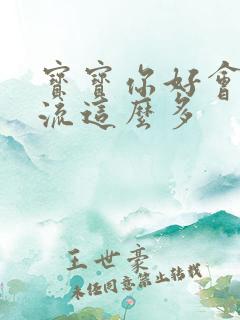 寶寶你好會
流這麼多
王世豪
未經同意禁止轉載